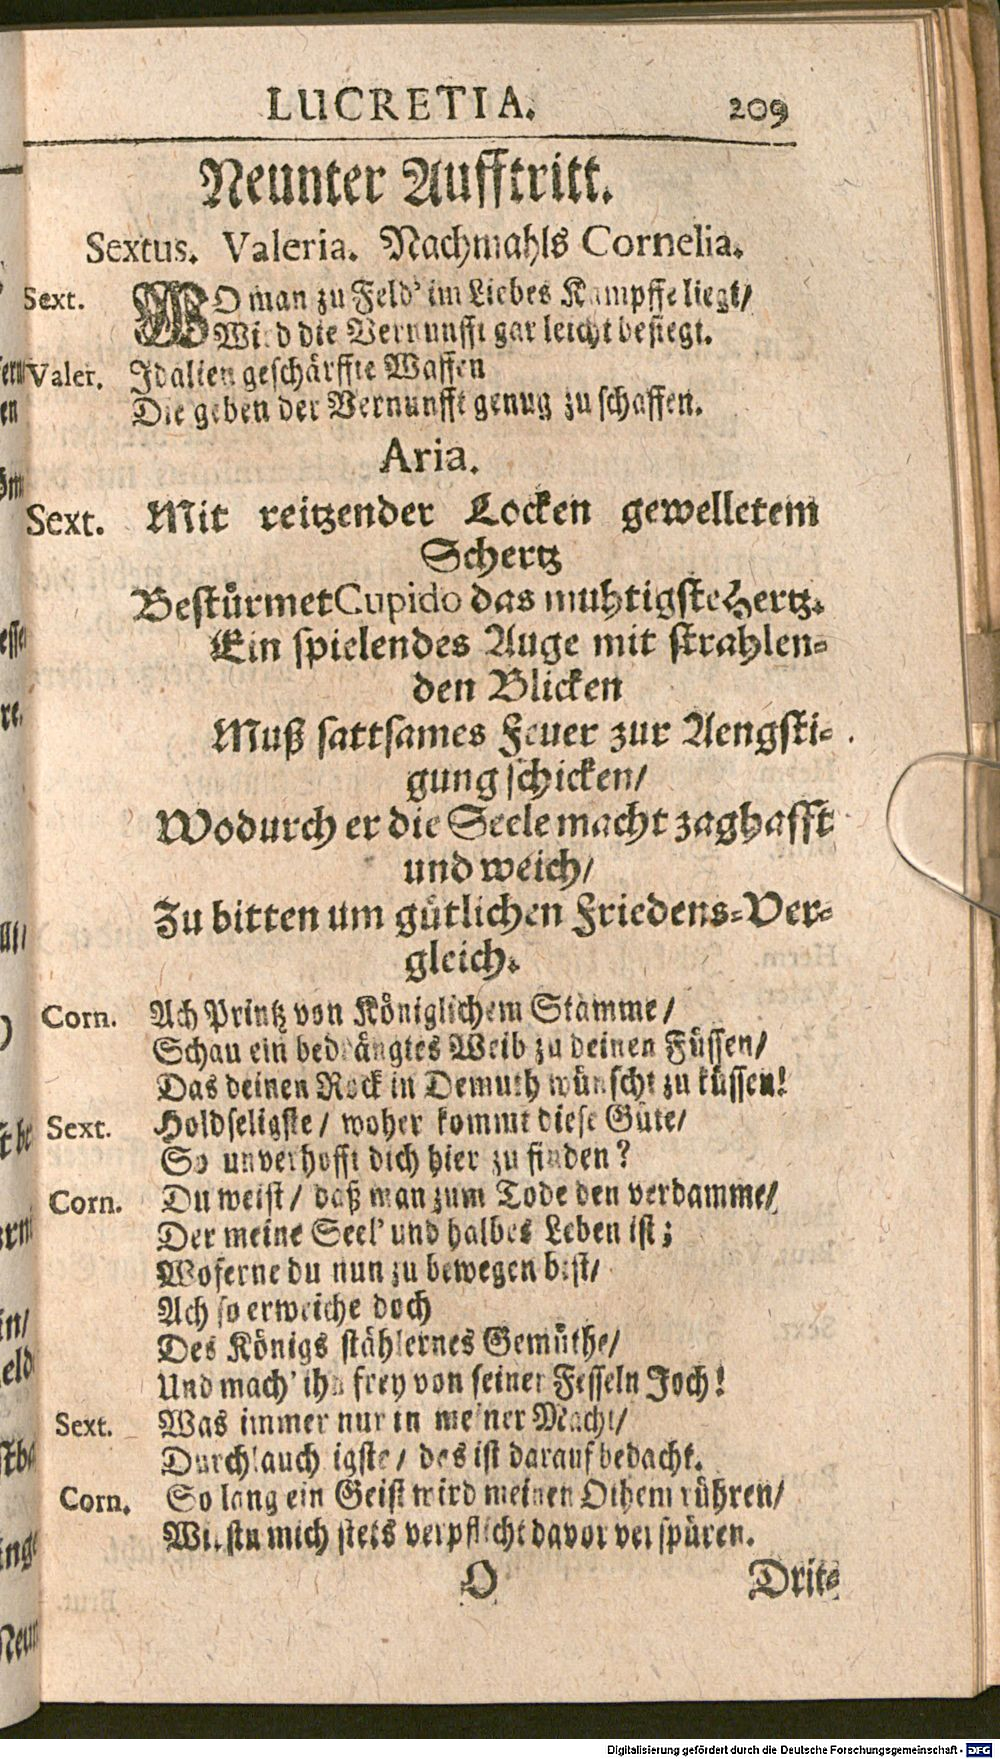 LUCRETIA. 209
Neunter Aufftritt.
Sextus. Valeria. Nachmahls Cornelia.
Sext. WO man zu Feld' im Liebes Kampffe liegt/
Wird die Vernunfft gar leicht besiegt.
Valer. Idalien geschärffte Waffen
Die geben der Vernunfft genug zu schaffen.
Aria.
Sext. Mit reitzender Locken gewelletem
Schertz
Bestürmet Cupido das muhtigste Hertz.
Ein spielendes Auge mit strahlen-
den Blicken
Muß sattsames Feuer zur Aengsti-
gung schicken/
Wodurch er die Seele macht zaghafft
und weich/
Zu bitten um gütlichen Friedens-Ver-
gleich.
Corn. Ach Printz von Königlichem Stamme/
Schau ein bedrängtes Weib zu deinen Füssen/
Das deinen Rock in Demuth wünscht zu küssen!
Sext. Holdseligste / woher kommt diese Güte/
So unverhofft dich hier zu finden?
Corn. Du weist / daß man zum Tode den verdamme/
Der meine Seel' und halbes Leben ist;
Woferne du nun zu bewegen bist/
Ach so erweiche doch
Des Königs stählernes Gemüthe/
Und mach' ihn frey von seiner Fesseln Joch!
Sext. Was immer nur in meiner Macht/
Durchlauchtigste / das ist darauf bedacht.
Corn. So lang ein Geist wird meinen Othem rühren/
Wirstu mich stets verpflicht davor verspüren.
O Drit-
Digitalisierung gefördert durch die Deutsche Forschungsgemeinschaft - DFG